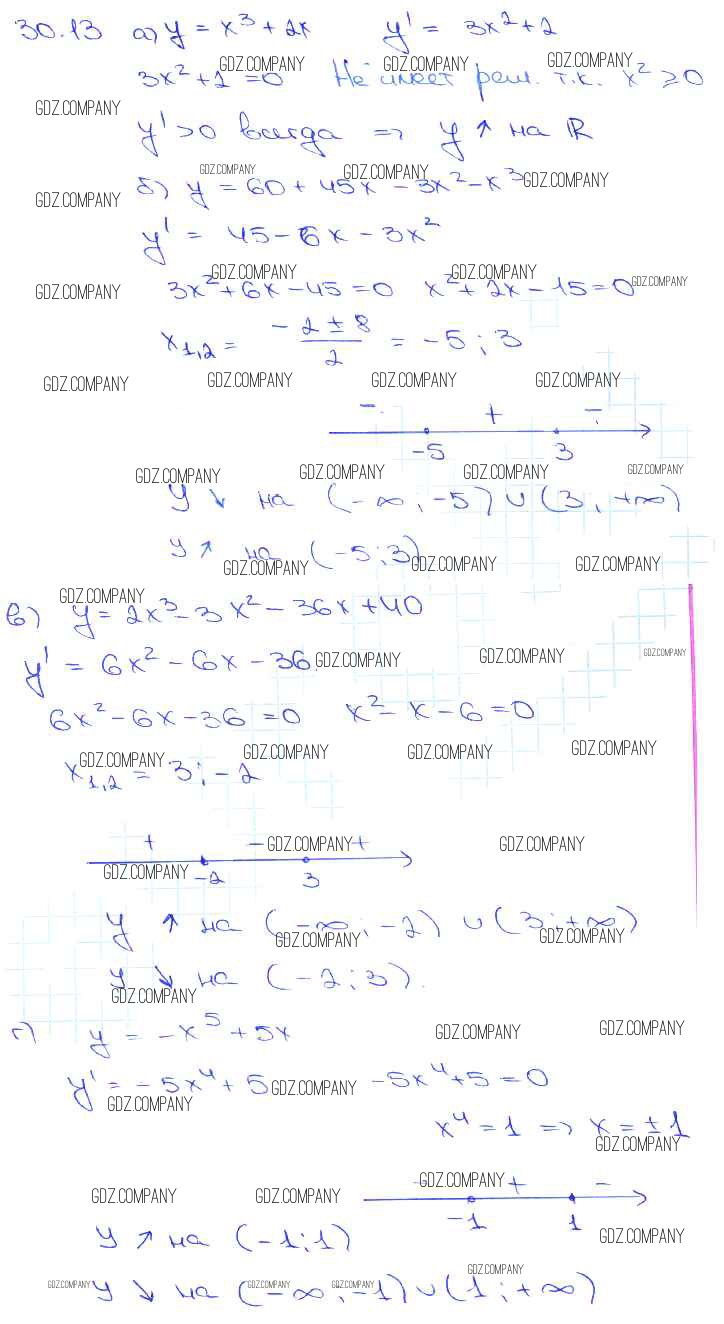 30.13 а) y = x³ + 2x y' = 3x² + 2
GDZ.COMPANY GDZ.COMPANY GDZ.COMPANY
3x² + 1 = 0 Не имеет реш. т.к. x² ≥ 0
GDZ.COMPANY
y' > 0 всегда => y ↑ на ℝ
GDZ.COMPANY GDZ.COMPANY
б) y = 60 + 45x - 3x² - x³ GDZ.COMPANY
GDZ.COMPANY
y' = 45 - 6x - 3x²
GDZ.COMPANY GDZ.COMPANY
GDZ.COMPANY 3x² + 6x - 45 = 0 x² + 2x - 15 = 0 GDZ.COMPANY
x₁,₂ = (-2 ± 8)/2 = -5 ; 3
GDZ.COMPANY GDZ.COMPANY GDZ.COMPANY GDZ.COMPANY
- + -
-5 3
GDZ.COMPANY GDZ.COMPANY GDZ.COMPANY GDZ.COMPANY
y ↓ на (-∞ ; -5) ∪ (3 ; +∞)
y ↑ на (-5 ; 3)
GDZ.COMPANY GDZ.COMPANY GDZ.COMPANY
GDZ.COMPANY
в) y = 2x³ - 3x² - 36x + 40
y' = 6x² - 6x - 36 GDZ.COMPANY GDZ.COMPANY GDZ.COMPANY
6x² - 6x - 36 = 0 x² - x - 6 = 0
GDZ.COMPANY GDZ.COMPANY GDZ.COMPANY GDZ.COMPANY
x₁,₂ = 3 ; -2
+ - GDZ.COMPANY + GDZ.COMPANY
GDZ.COMPANY -2 3
y ↑ на (-∞ ; -2) ∪ (3 ; +∞)
GDZ.COMPANY GDZ.COMPANY
y ↓ на (-2 ; 3).
GDZ.COMPANY
г) y = -x⁵ + 5x GDZ.COMPANY GDZ.COMPANY
y' = -5x⁴ + 5 GDZ.COMPANY -5x⁴ + 5 = 0
GDZ.COMPANY
x⁴ = 1 => x = ±1
GDZ.COMPANY
- GDZ.COMPANY + -
GDZ.COMPANY GDZ.COMPANY
-1 1
y ↗ на (-1 ; 1) GDZ.COMPANY
GDZ.COMPANY
GDZ.COMPANY y ↘ на (-∞ ; -1) ∪ (1 ; +∞) GDZ.COMPANY GDZ.COMPANY